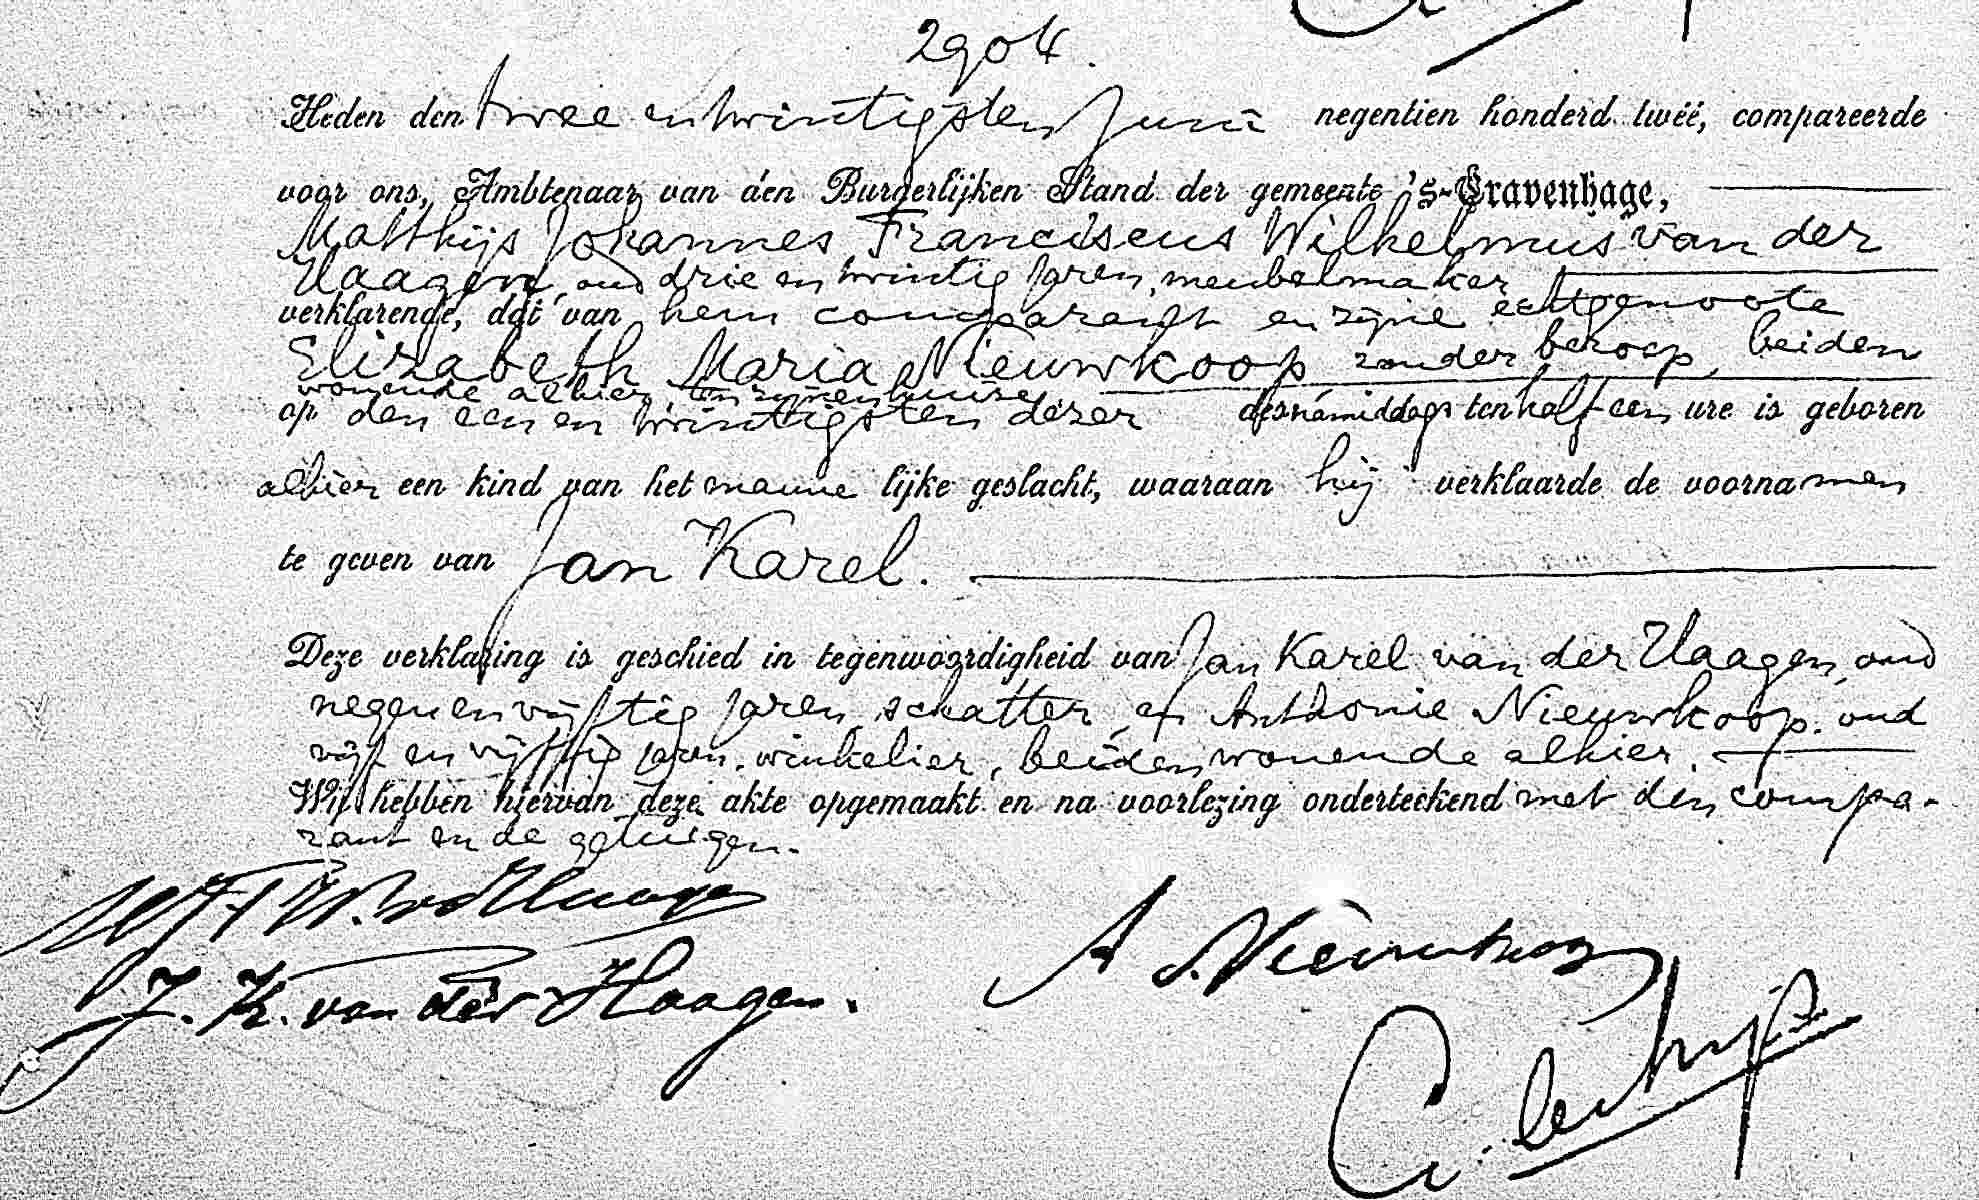 2904.
Heden den twee en twintigsten Juni negentien honderd twéé, compareerde
voor ons, Ambtenaar van den Burgerlijken Stand der gemeente 's-Gravenhage,
Matthijs Johannes Franciscus Wilhelmus van der
Haagen, oud drie en twintig jaren, meubelmaker
verklarende, dat van hem comparant en zijne echtgenoote
Elizabeth Maria Nieuwkoop zonder beroep, beiden
wonende alhier, ten zijnen huize
op den een en twintigsten dezer des namiddags ten half een ure is geboren
alhier een kind van het manne lijke geslacht, waaraan hij verklaarde de voorna men
te geven van Jan Karel.
Deze verklaring is geschied in tegenwoordigheid van Jan Karel van der Haagen, oud
negen en vijftig jaren, schatter, en Anthonie Nieuwkoop, oud
vijf en vijftig jaren, winkelier, beiden wonende alhier.
Wij hebben hiervan deze akte opgemaakt en na voorlezing onderteekend met den compa-
rant en de getuigen.
J. K. van der Haagen.
A Nieuwkoop